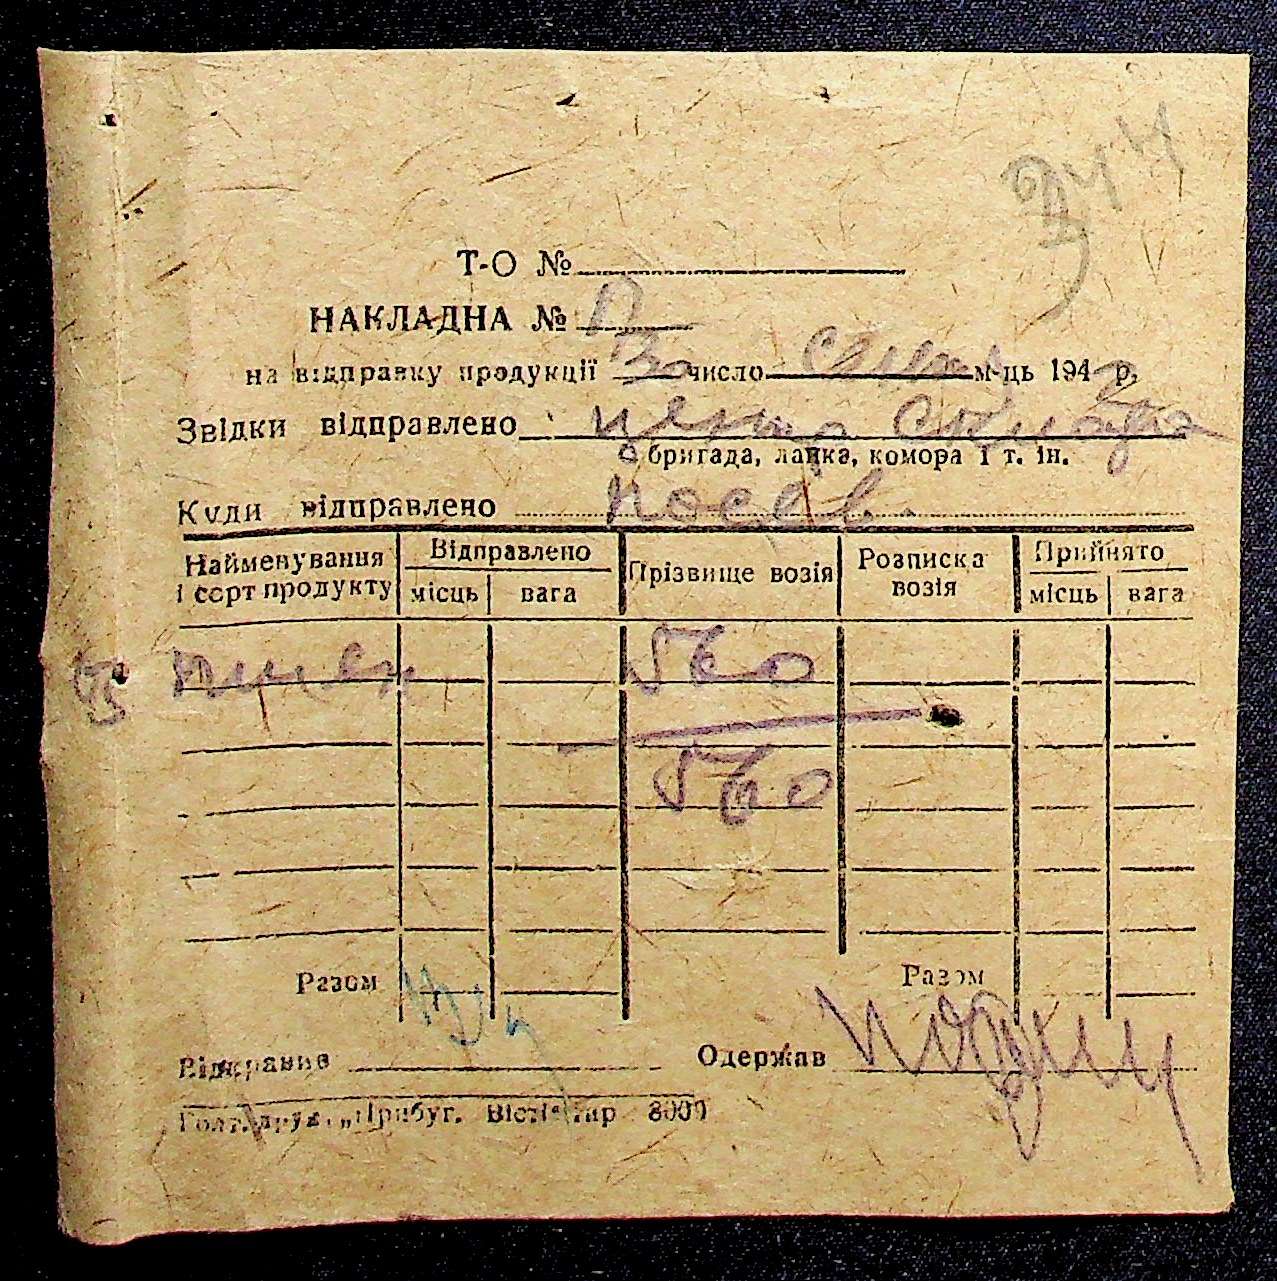 344
Т-О №
НАКЛАДНА №
на відправку продукції число м-ць 1942 р.
Звідки відправлено центр склада
бригада, ланка, комора і т. ін.
Куди відправлено посев
Найменування і сорт продукту Відправлено місць вага Прізвище возія Розписка возія Прийнято місць вага
560
560
Разом Разом
Відправив Одержав
Голт. друк. „Прибуг. Вісті“ тир 8000